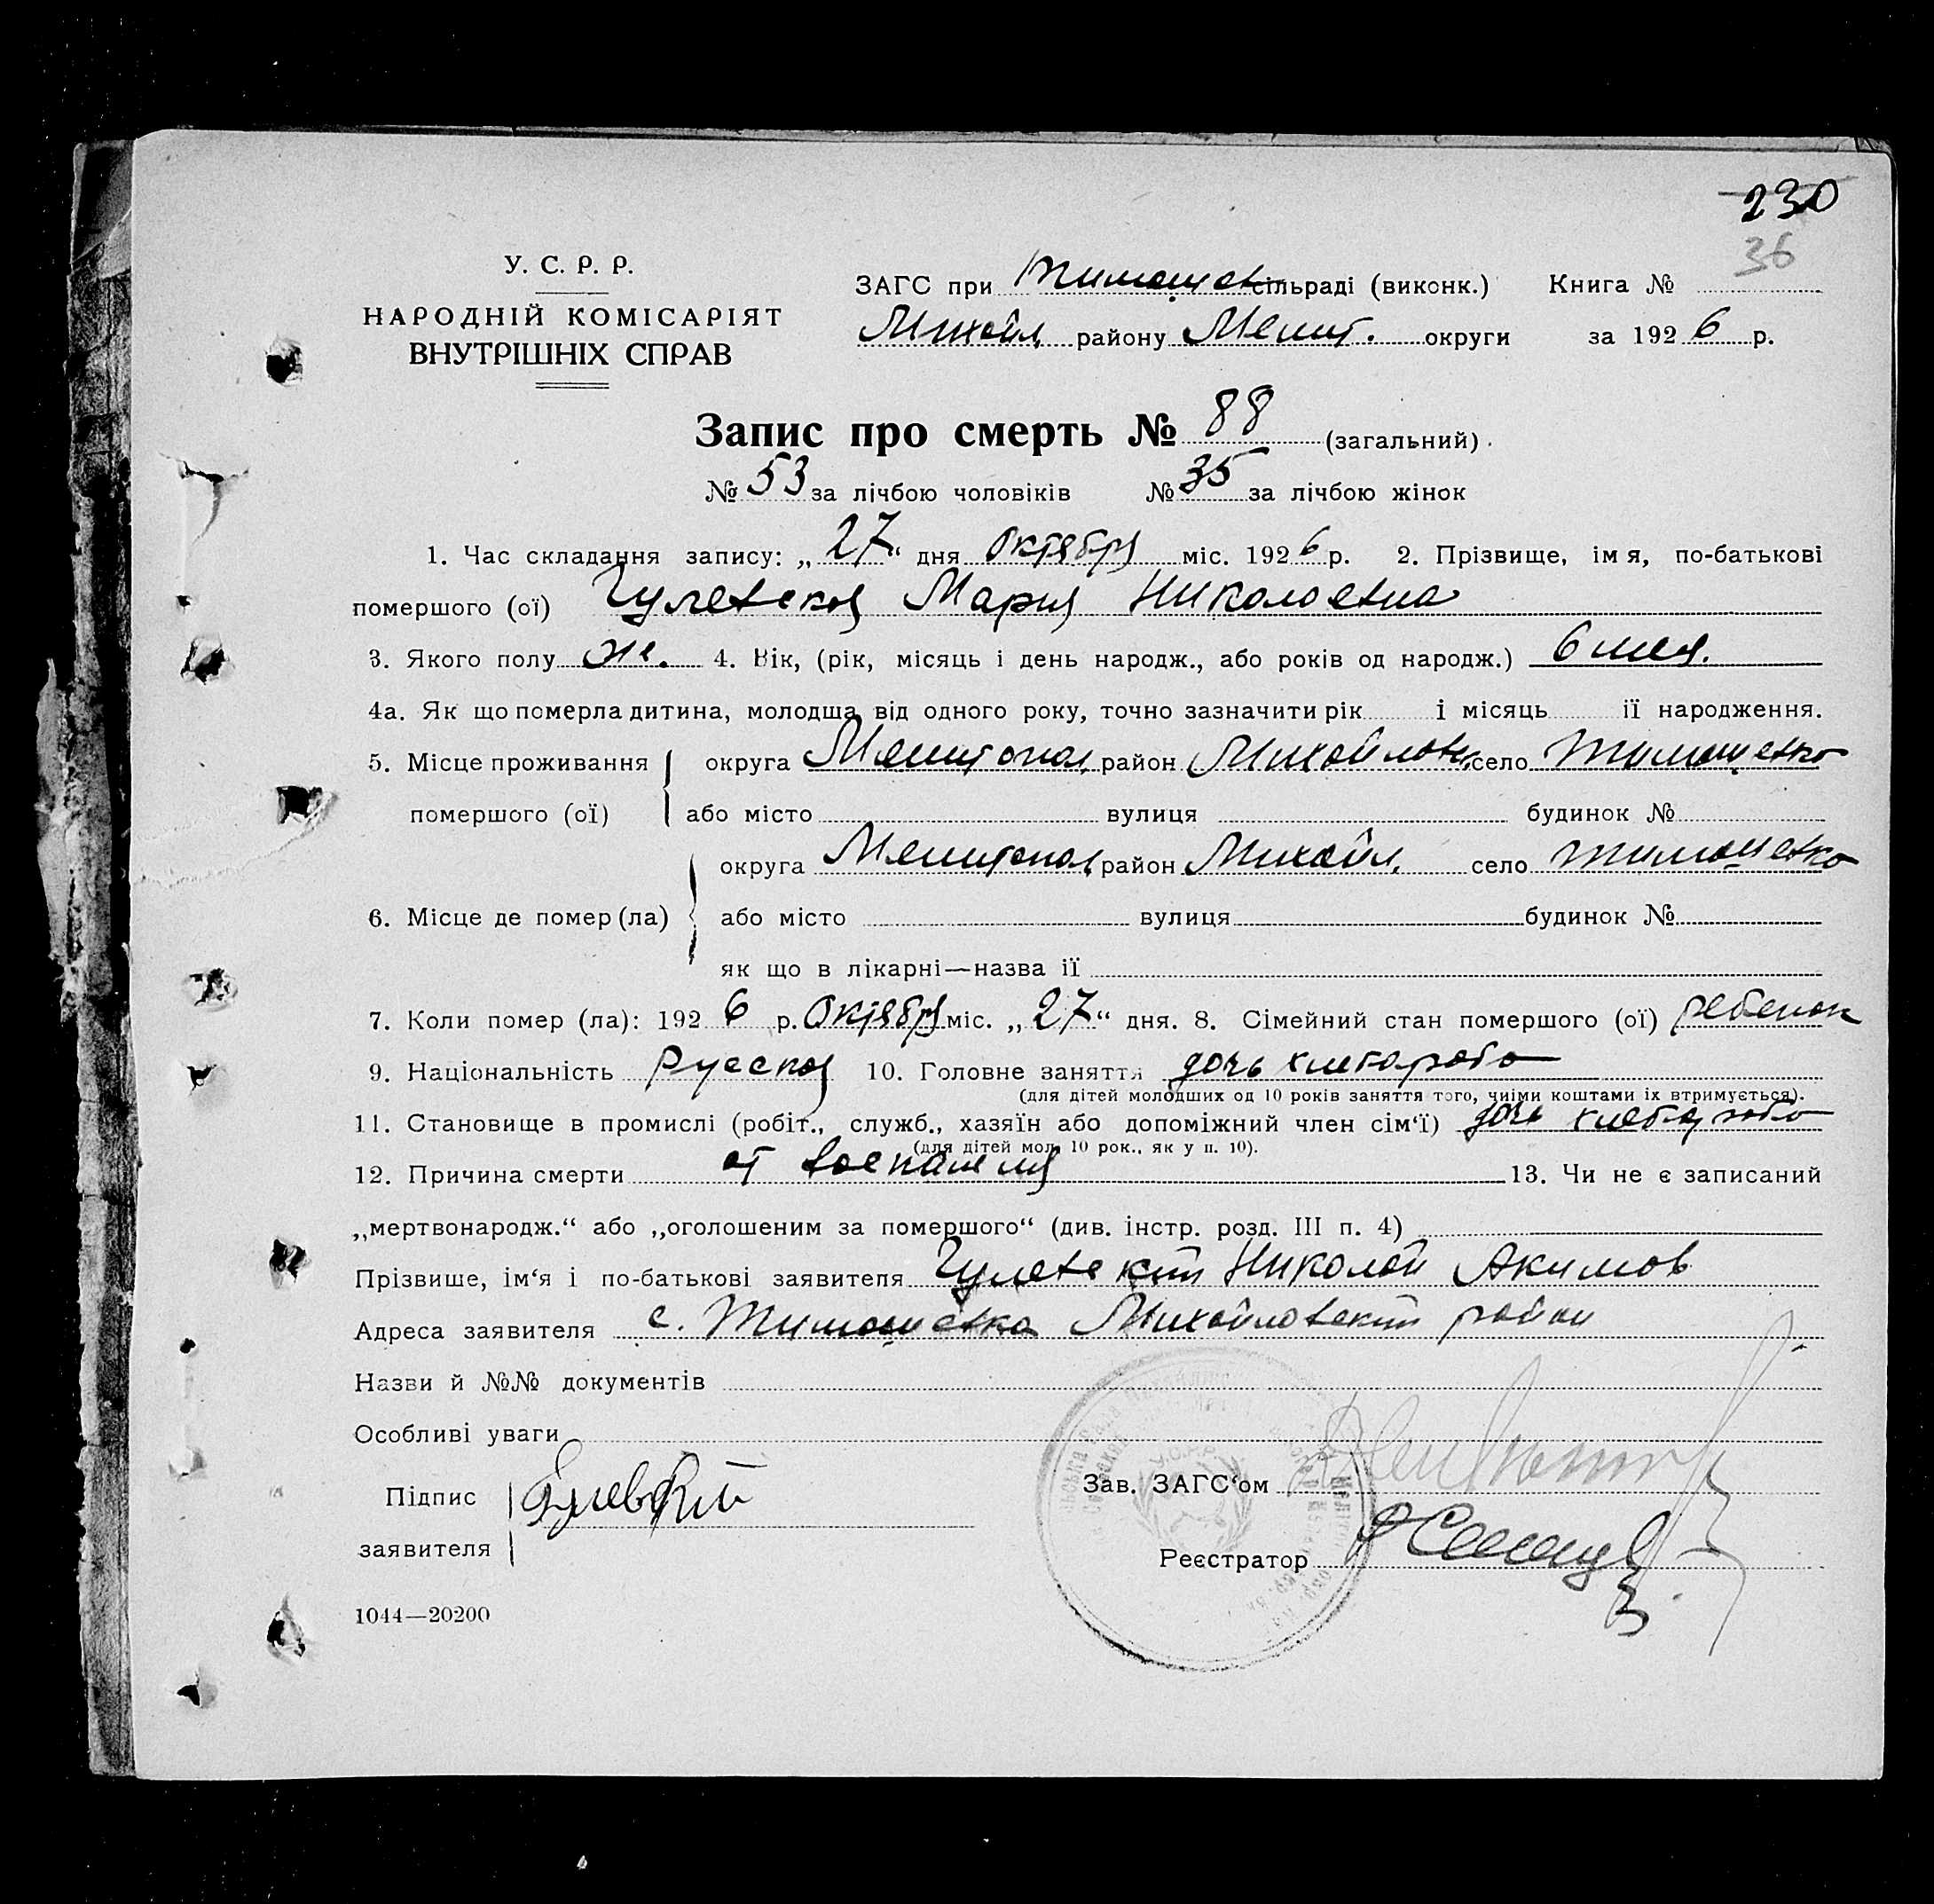 230
36
У. С. Р. Р.
НАРОДНІЙ КОМІСАРІЯТ
ВНУТРІШНІХ СПРАВ
ЗАГС при Тимошев сільраді (виконк.) Книга №
Михайл. району Мелит. округи за 1926 р.
Запис про смерть № 88 (загальний).
№ 53 за лічбою чоловіків № 35 за лічбою жінок
1. Час складання запису: „27“ дня Октября міс. 1926 р. 2. Прізвище, імя, по-батькові
помершого (ої) Гулевская Мария Николаевна
3. Якого полу ж. 4. Вік, (рік, місяць і день народж., або років од народж.) 6 мес.
4а. Як що померла дитина, молодша від одного року, точно зазначити рік і місяць її народження.
5. Місце проживання округа Мелитопол. район Михайловк. село Тимошевка
помершого (ої) або місто вулиця будинок №
округа Мелитопол. район Михайл. село Тимошевка
6. Місце де помер (ла) або місто вулиця будинок №
як що в лікарні—назва її
7. Коли помер (ла): 1926 р. Октября міс. „27“ дня. 8. Сімейний стан помершого (ої) ребенок
9. Національність Русская 10. Головне заняття дочь хлебороба
(для дітей молодших од 10 років заняття того, чиїми коштами їх втримується).
11. Становище в промислі (робіт., служб., хазяїн або допоміжний член сім‘ї) дочь хлебороба
(для дітей мол. 10 рок., як у п. 10).
12. Причина смерти от воспаления 13. Чи не є записаний
„мертвонародж.“ або „оголошеним за помершого“ (див. інстр. розд. III п. 4)
Прізвище, ім‘я і по-батькові заявителя Гулевский Николай Акимов
Адреса заявителя с. Тимошевка Михайловский район
Назви й №№ документів
Особливі уваги
Підпис Гулевский
заявителя
Зав. ЗАГС‘ом
Реєстратор
1044—20200